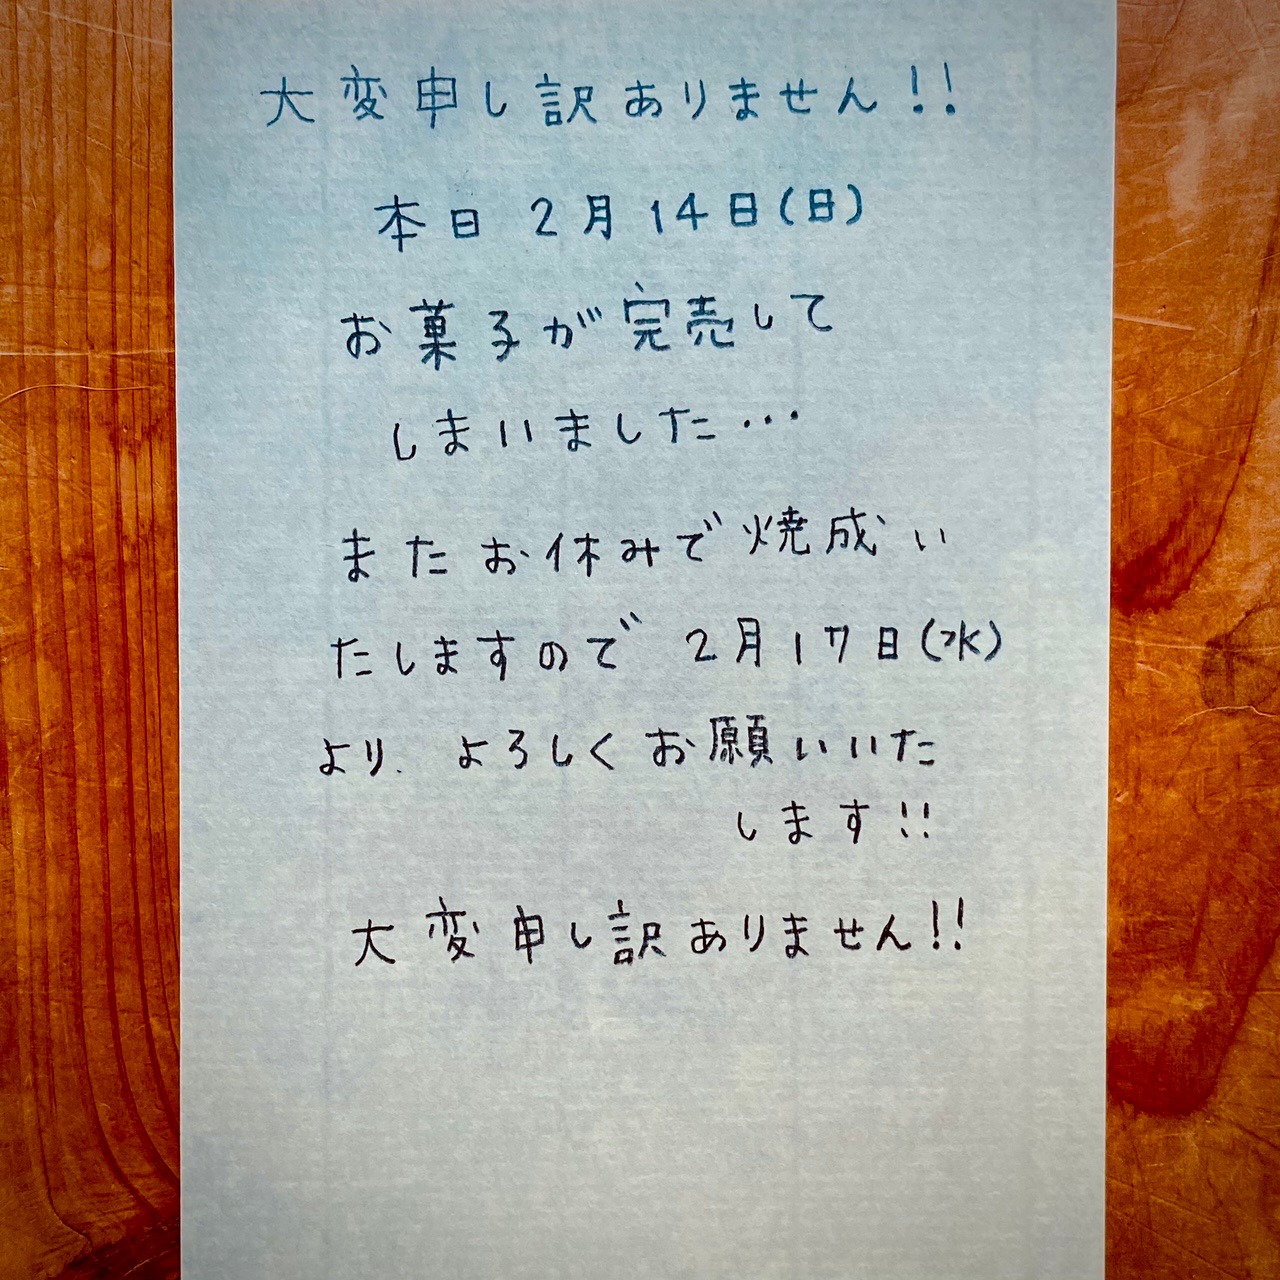 大変申し訳ありません!!
本日2月14日(日)
お菓子が完売して
しまいました…
またお休みで焼成い
たしますので2月17日(水)
より、よろしくお願いいた
します!!
大変申し訳ありません!!